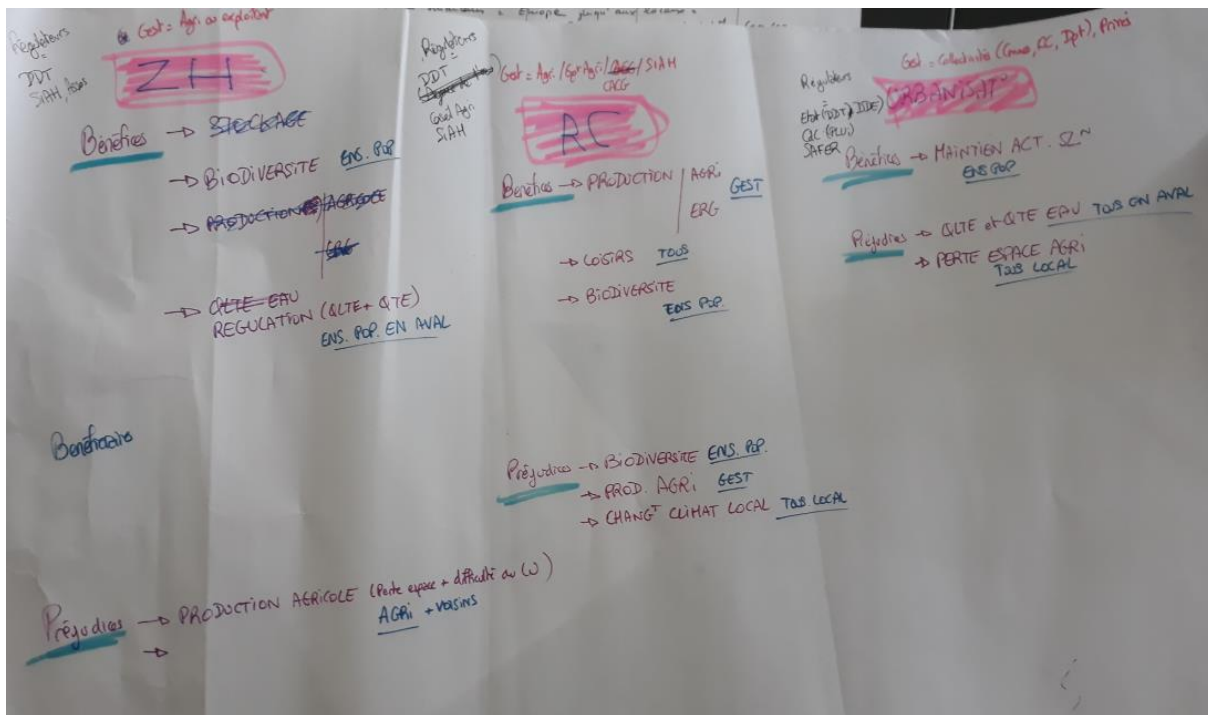 Europe jusqu'aux
Régulateurs
DDT
SIAH,
Gest = Agri ou exploitant
ZH
Bénéfices → STOCKAGE
→ BIODIVERSITE ENS. POP
→ PRODUCTION / AGRICOLE
ERG
→ QLTE EAU
REGULATION (QLTE + QTE)
ENS. POP. EN AVAL
Bénéficiaire
Préjudices → PRODUCTION AGRICOLE (Perte espace + difficulté au
AGRI + VOISINS
→
Régulateurs
DDT
SIAH
Gest = Agri / Gpt Agri / / SIAH
CACG
RC
Bénéfices → PRODUCTION / AGRI
ERG
GEST
→ LOISIRS TOUS
→ BIODIVERSITE
ENS POP.
Préjudices → BIODIVERSITE ENS. POP.
→ PROD. AGRI GEST
→ CHANGT CLIMAT LOCAL TOUS LOCAL
Régulateurs
Etat (DDT),
(PLUi)
SAFER
Gest = Collectivités (Dpt), Privés
URBANISAT°
Bénéfices → MAINTIEN ACT.
ENS POP
Préjudices → QLTE et QTE EAU TOUS EN AVAL
→ PERTE ESPACE AGRI
TOUS LOCAL